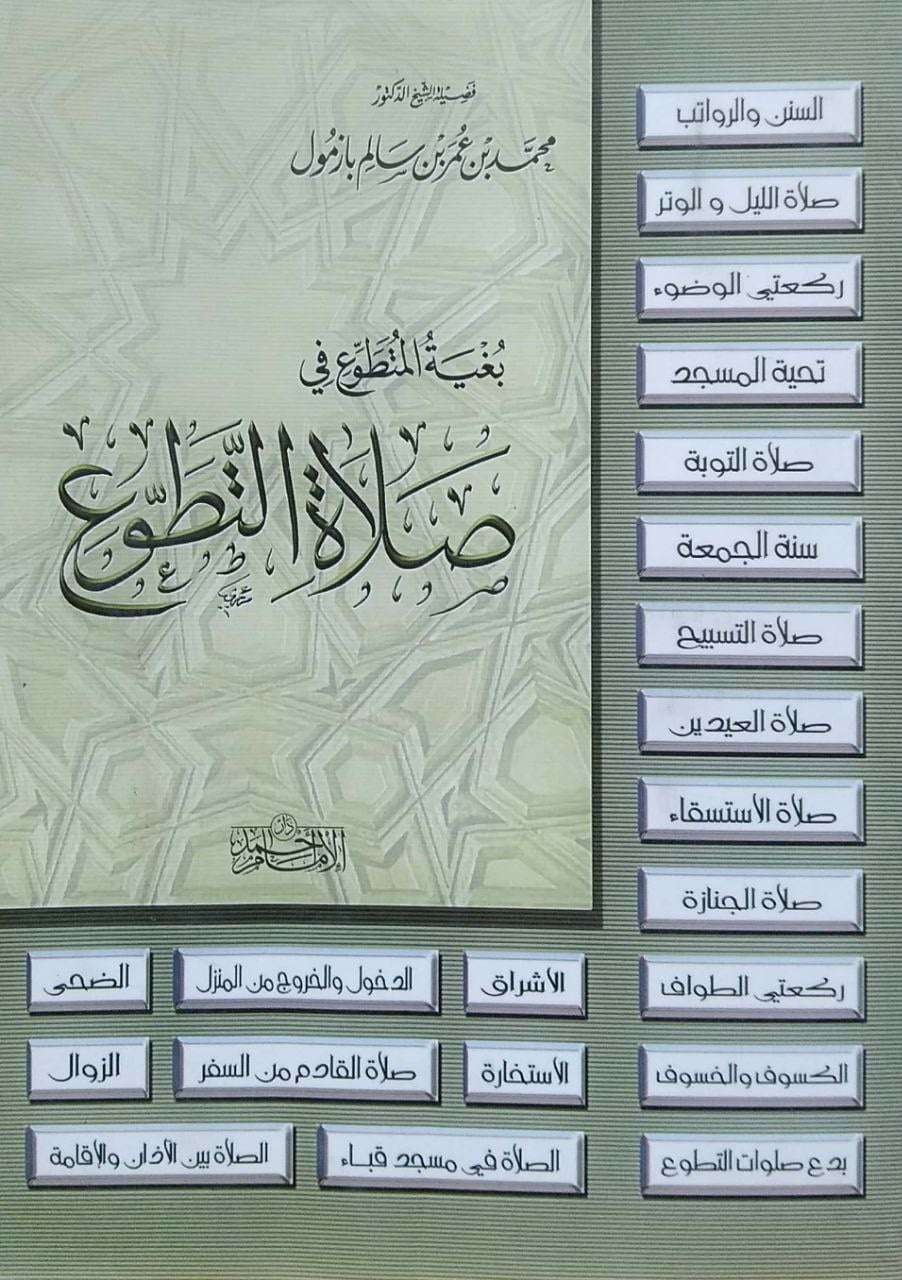 فضيلة الشيخ الدكتور
محمد بن عمر بن سالم بازمول
بُغْيَةُ المُتَطَوِّع في
صَلَاةُ التَّطَوُّع
دار
الإمام أحمد
السنن والرواتب
صلاة الليل و الوتر
ركعتي الوضوء
تحية المسجد
صلاة التوبة
سنة الجمعة
صلاة التسبيح
صلاة العيدين
صلاة الأستسقاء
صلاة الجنازة
ركعتي الطواف
الكسوف والخسوف
بدع صلوات التطوع
الأشراق
الدخول والخروج من المنزل
الضحى
الأستخارة
صلاة القادم من السفر
الزوال
الصلاة في مسجد قباء
الصلاة بين الأذان والإقامة